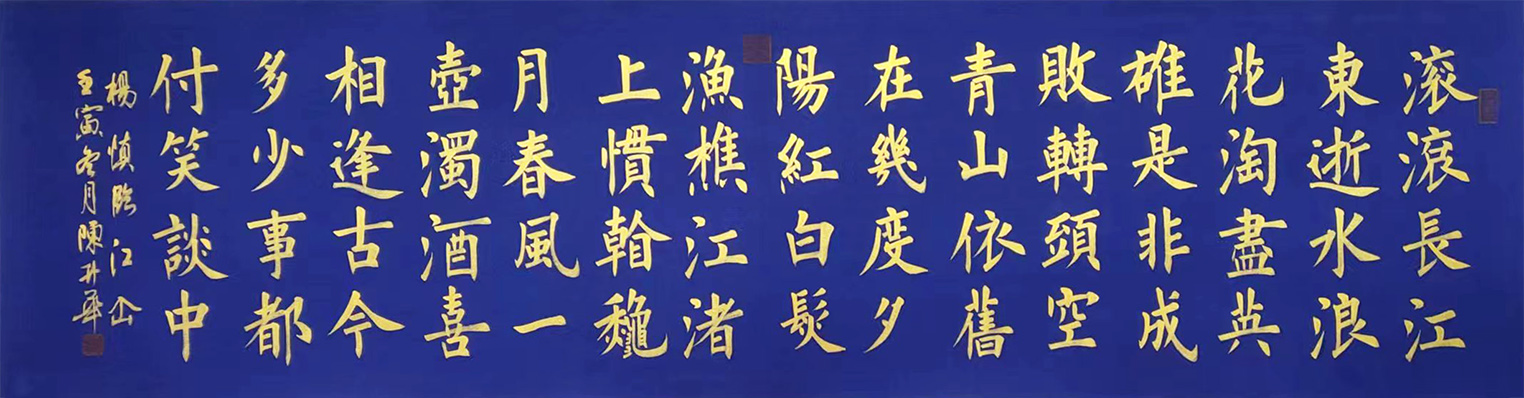 滚滾長江
東逝水浪
花淘盡英
雄是非成
敗轉頭空
青山依舊
在幾度夕
陽紅白髮
漁樵江渚
上慣龝
月春風一
壺濁酒喜
相逢古今
多少事都
付笑談中
楊慎臨江仚
壬寅冬月陳升華